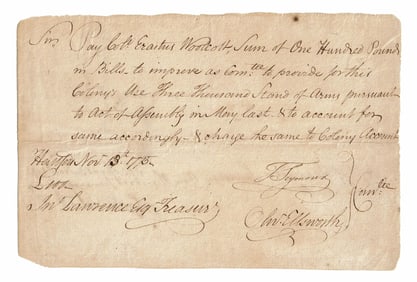 Sir, Pay Colo. Erastus Woolcott Sum of One Hundred Pounds
in Bills to improve as Comtee to provide for this
Colony's Use Three Thousand Stand of Arms pursuant
to Act of Assembly in May last & to account for
same accordingly & charge the same to Colony Account
Hartford Nov 13th 1775
T Seymour
Comtee
Jno. Lawrence Esq Treasurr
Olivr. Ellsworth